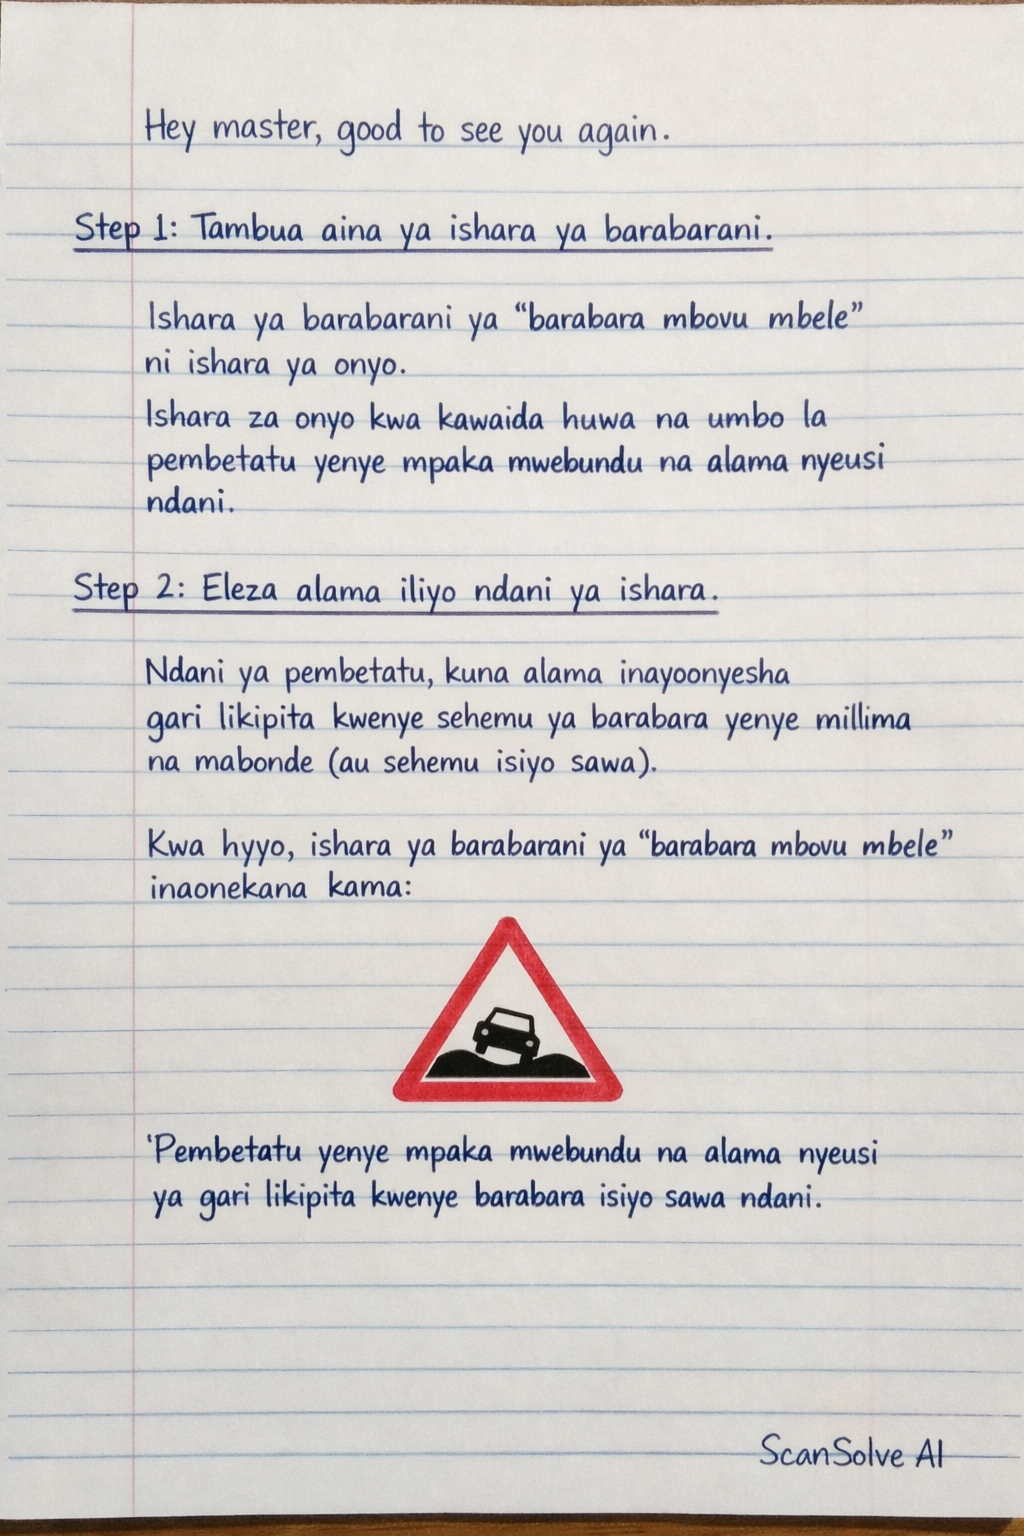 Hey master, good to see you again.
Step 1: Tambua aina ya ishara ya barabarani.
Ishara ya barabarani ya “barabara mbovu mbele”
ni ishara ya onyo.
Ishara za onyo kwa kawaida huwa na umbo la
pembetatu yenye mpaka mwebundu na alama nyeusi
ndani.
Step 2: Eleza alama iliyo ndani ya ishara.
Ndani ya pembetatu, kuna alama inayoonyesha
gari likipita kwenye sehemu ya barabara yenye millima
na mabonde (au sehemu isiyo sawa).
Kwa hyyo, ishara ya barabarani ya “barabara mbovu mbele”
inaonekana kama:
‘Pembetatu yenye mpaka mwebundu na alama nyeusi
ya gari likipita kwenye barabara isiyo sawa ndani.
ScanSolve AI